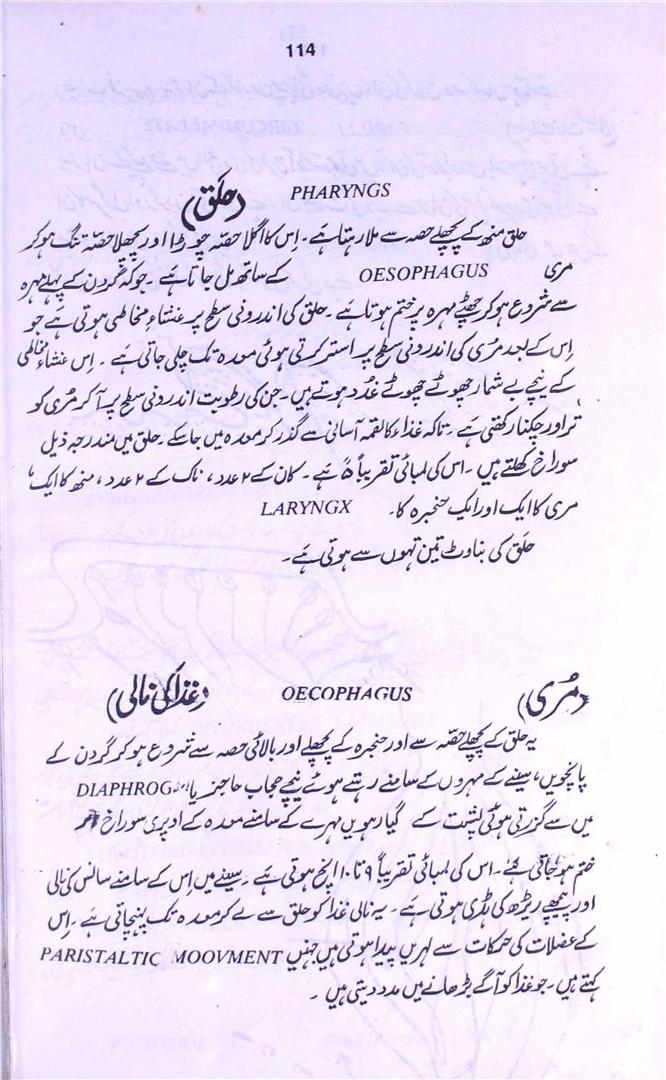 114
(حلق) PHARYNGS
حلق منھ کے پچھلے حصہ سے ملا رہتا ہے۔ اس کا اگلا حصّہ چوڑا اور پچھلا حصّہ تنگ ہو کر
مری OESOPHAGUS کے ساتھ مل جاتا ہے۔ جو کہ گردن کے پہلے مہرہ
سے شروع ہو کر چھٹے مہرہ پر ختم ہوتا ہے۔ حلق کی اندرونی سطح پر غشاءِ مخاطی ہوتی ہے جو
اِس کے بعد مرُی کی اندرونی سطح پر استر کرتی ہوئی معدہ تک چلی جاتی ہے۔ اس غشاءِ مخاطی
کے نیچے بے شمار چھوٹے چھوٹے غُدد ہوتے ہیں۔ جن کی رطوبت اندرونی سطح پر آکر مرُی کو
تر اور چکنا رکھتی ہے۔ تاکہ غذا کا لقمہ آسانی سے گذر کر معدہ میں جا سکے۔ حلق میں مندرجہ ذیل
سوراخ کھلتے ہیں۔ اس کی لمبائی تقریباً ۵ً ہے۔ کان کے ۲ عدد، ناک کے ۲ عدد، منھ کا ایک،
مری کا ایک اور ایک حنجرہ کا۔ LARYNGX
حلَق کی بناوٹ تین تہوں سے ہوتی ہے۔
(مُری) OECOPHAGUS (غذا کی نالی)
یہ حلق کے پچھلے حصّہ سے اور حنجرہ کے پچھلے اور بالائی حصہ سے شروع ہو کر گردن کے
پانچویں، سینے کے مہروں کے سامنے رہتے ہوئے نیچے حجاب حاجز یا DIAPHROG
میں سے گزرتی ہوئی پُشت کے گیارہویں مہرے کے سامنے معدہ کے اوپری سوراخ پر
ختم ہو جاتی ہے۔ اس کی لمبائی تقریباً ۹ تا ۱۰ انچ ہوتی ہے۔ سینے میں اس کے سامنے سانس کی نالی
اور پیچھے ریڑھ کی ہڈی ہوتی ہے۔ یہ نالی غذا کو حلق سے لے کر معدہ تک پہنچاتی ہے۔ اِس
کے عضلات کی حرکات سے لہریں پیدا ہوتی ہیں جنہیں PARISTALTIC MOOVMENT
کہتے ہیں۔ جو غذا کو آگے بڑھانے میں مدد دیتی ہیں۔